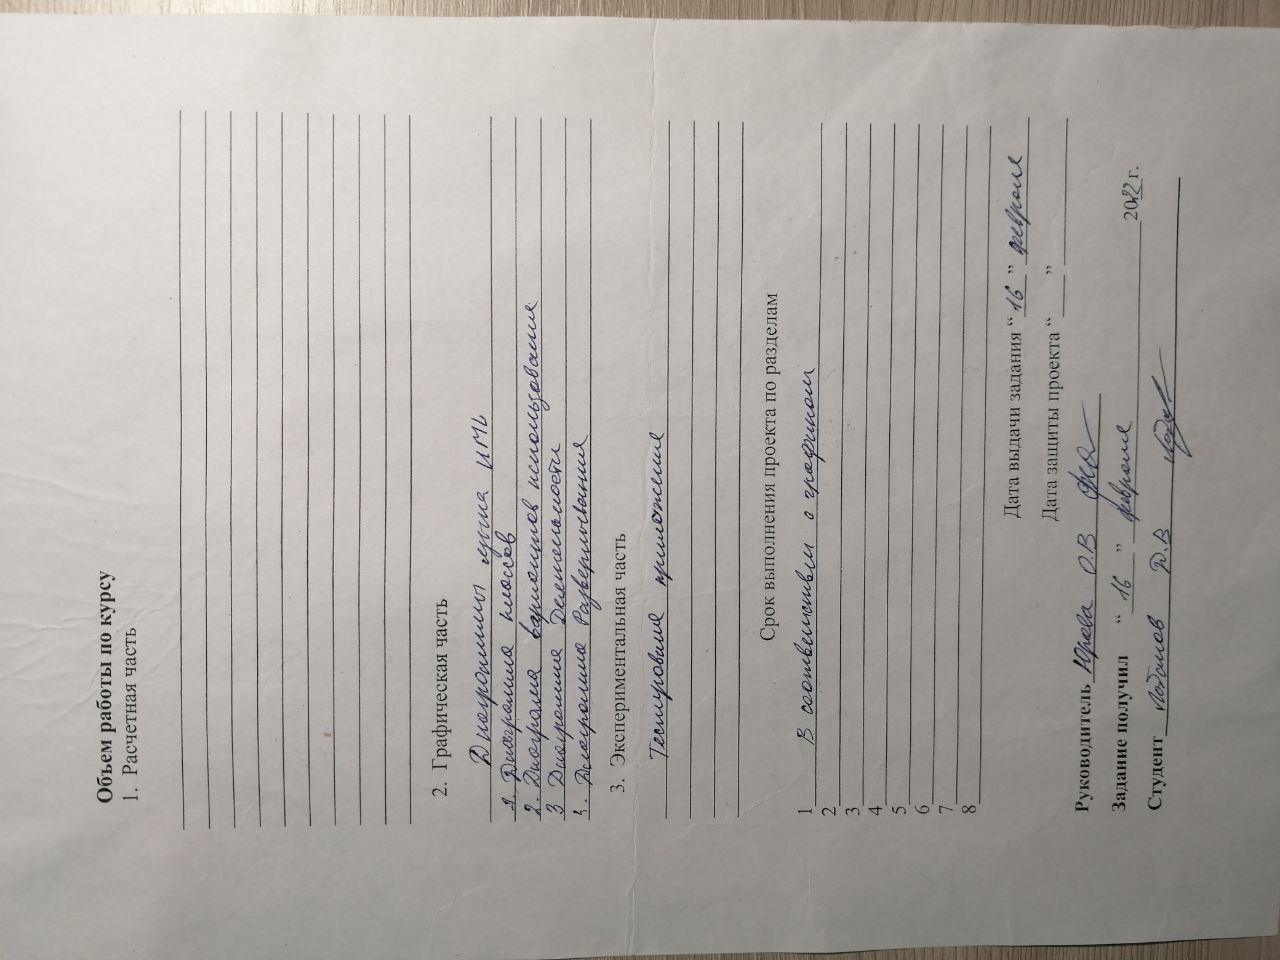 Объем работы по курсу
1. Расчетная часть
2. Графическая часть
Диаграммы языка UML
1. Диаграмма классов
2. Диаграма вариантов использования
3 Диаграмма Деятельности
3. Диаграмма Развертывания
3. Экспериментальная часть
Тестирование приложения
Срок выполнения проекта по разделам
1 В соответствии с графиком
2
3
4
5
6
7
8
Дата выдачи задания “16” февраля
Дата защиты проекта “ ”
Руководитель Юрева О.В
Задание получил “ 16 ” февраля 2022г.
Студент Д.В